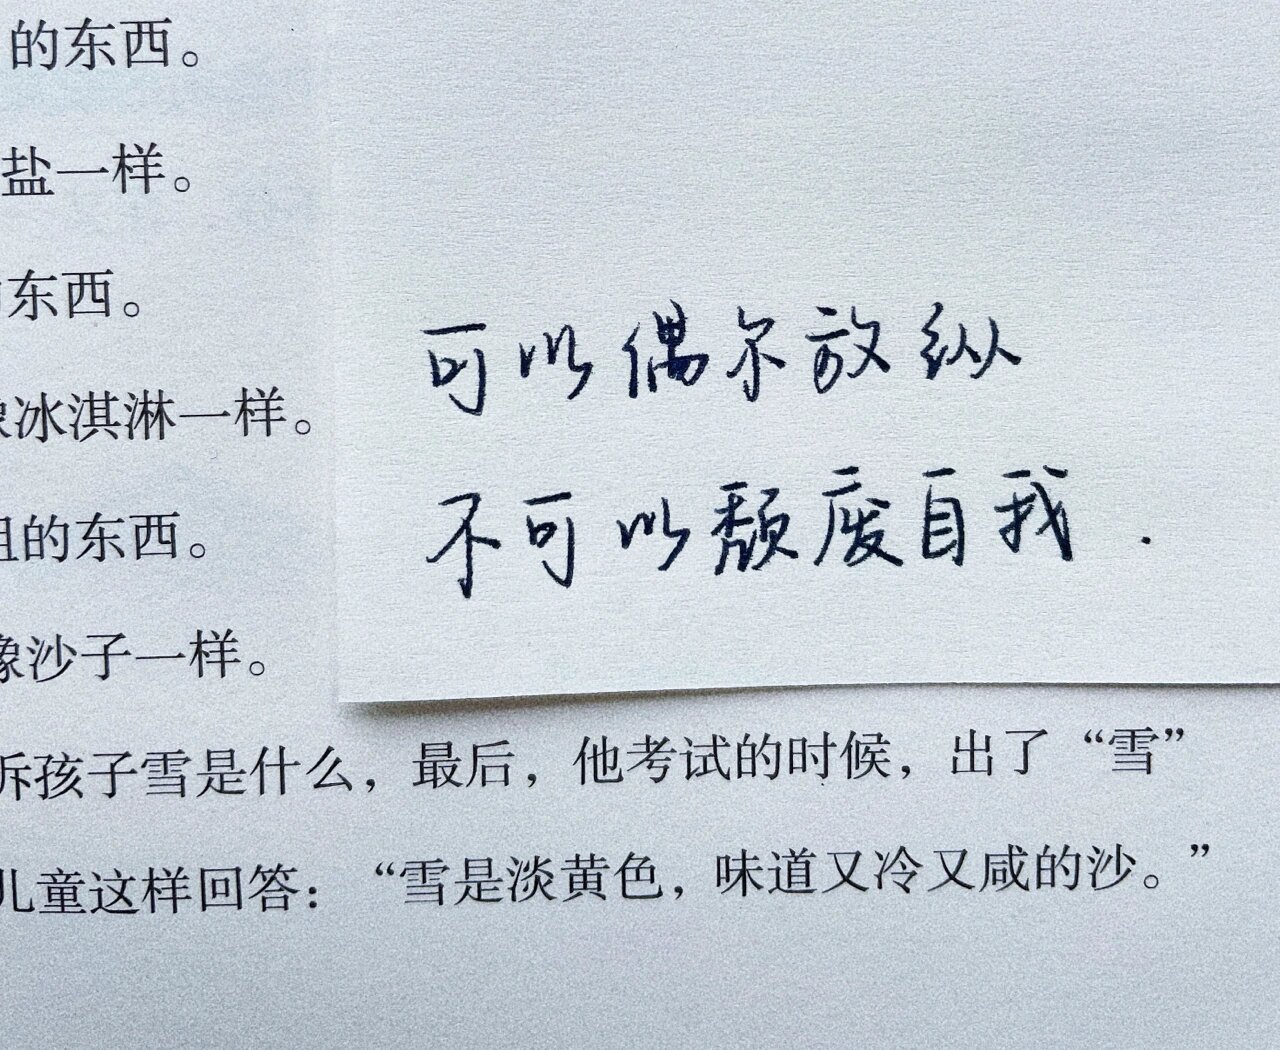 的东西。
盐一样。
东西。
冰淇淋一样。
的东西。
像沙子一样。
可以偶尔放纵
不可以颓废自我.
诉孩子雪是什么，最后，他考试的时候，出了“雪”
儿童这样回答：“雪是淡黄色，味道又冷又咸的沙。”